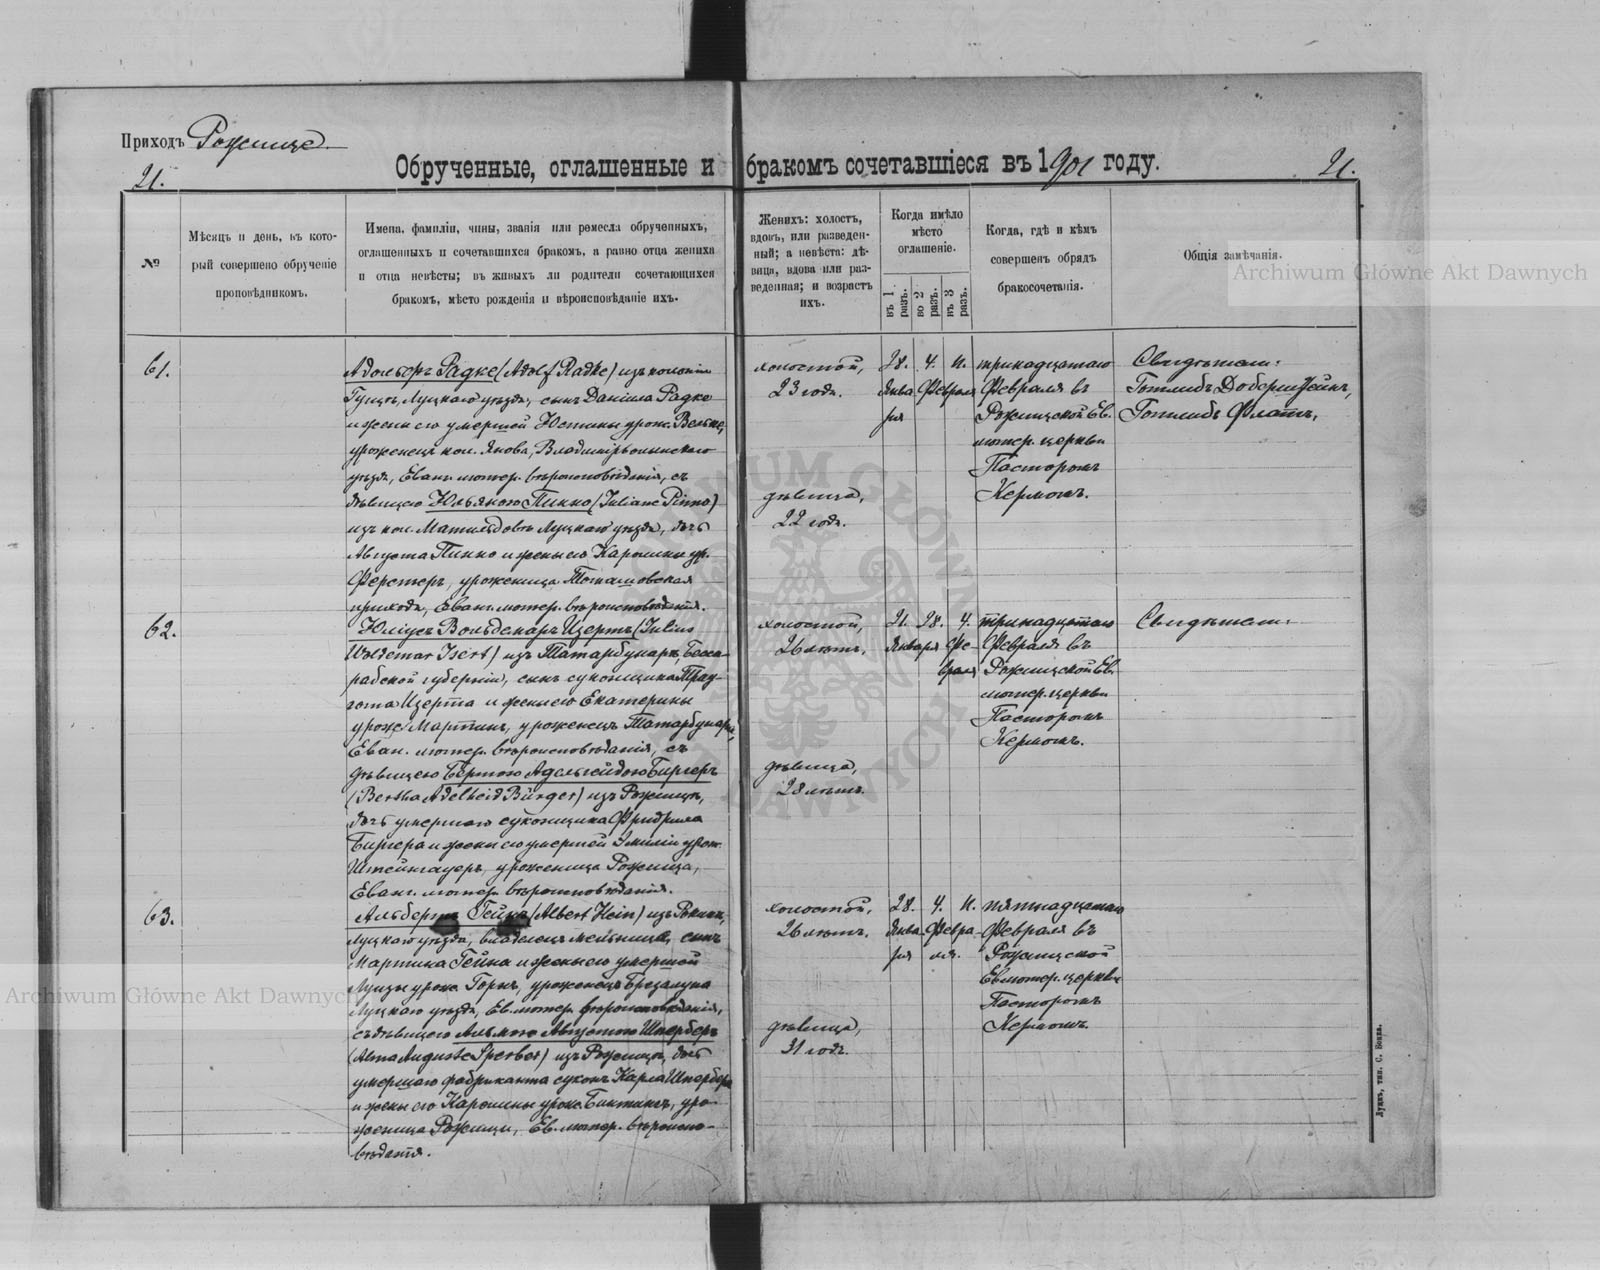 Приходъ Рожище
Обрученные, оглашенные и бракомъ сочетавшіеся въ 1901 году.
21.
21.
№
Мѣсяцъ и день, въ кото-
рый совершено обрученіе
проповѣдникомъ.
Имена, фамиліи, чины, званія или ремесла обрученныхъ,
оглашенныхъ и сочетавшихся бракомъ, а равно отца жениха
и отца невѣсты; въ живыхъ ли родители сочетающихся
бракомъ, мѣсто рожденія и вѣроисповѣданіе ихъ.
Женихъ: холостъ,
вдовъ, или разведен-
ный; а невѣста: дѣ-
вица, вдова или раз-
веденная; и возрастъ
ихъ.
Когда имѣло
мѣсто
оглашеніе.
въ 1 разъ.
во 2 разъ.
въ 3 разъ.
Когда, гдѣ и кѣмъ
совершенъ обрядъ
бракосочетанія.
Общія замѣчанія.
61.
Адольфъ Радке (Adolf Radke) изъ колоніи
Луцкаго уѣзда, сынъ Даніила Радке
и жены его умершей Юстины урож. Вельке,
уроженецъ кол. Янова, Владимірволынскаго
уѣзда, Еванг. лютер. вѣроисповѣданія, съ
дѣвицею Юльяною Пинно (Juliane Pinno)
изъ кол. Матильдовъ Луцкаго уѣзда, дочь
Августа Пинно и жены его Каролины ур.
Ферстеръ, уроженица Томашовская
прихода, Еванг. лютер. вѣроисповѣданія.
холостой,
23 года.
дѣвица,
22 года.
28. 4. 11.
Января Февраля
тринадцатаго
Февраля въ
Рожищской Ев.
лютер. церкви
Пасторомъ
Кермомъ.
Свидѣтели:
Готлибъ Доберштейнъ,
Готлибъ Флатъ,
62.
Юліусъ Вольдемаръ Изертъ (Julius
Woldemar Isert) изъ Татарбунаръ, Бесса-
рабской губерніи, сынъ суконщика Трау-
гота Изерта и жены его Екатерины
урож. Мартинъ, уроженецъ Татарбунаръ,
Еван. лютер. вѣроисповѣданія, съ
дѣвицею Бертою Адельгейдою Биргеръ
(Bertha Adelheid Bürger) изъ Рожищъ,
дочь умершаго суконщика Фридриха
Биргера и жены его умершей Эмиліи урож.
уроженица Рожища,
Еванг. лютер. вѣроисповѣданія.
холостой,
26 лѣтъ.
дѣвица,
28 лѣтъ.
21. 28. 4.
Января Фе-
враля
тринадцатаго
Февраля въ
Рожищской Ев.
лютер. церкви
Пасторомъ
Кермомъ.
Свидѣтели:
63.
Альбертъ Гейнъ (Albert Hein) изъ
Луцкаго уѣзда, владѣлецъ мельницы, сынъ
Мартина Гейна и жены его умершей
Луизы урож. Горнъ, уроженецъ
Луцкаго уѣзда, Ев. лютер. вѣроисповѣданія,
съ дѣвицею Альмою Августою Шперберъ
(Alma Auguste Sperber) изъ Рожищъ, дочь
умершаго фабриканта суконъ Карла Шпербера
и жены его Каролины урож. уро-
женица Рожищи, Ев. лютер. вѣроиспо-
вѣданія.
холостой,
26 лѣтъ.
дѣвица,
31 годъ.
28. 4. 11.
Января Февра
ля.
пятнадцатаго
Февраля въ
Рожищской
Ев. лютер. церкви
Пасторомъ
Кермомъ.
Луцкъ, тип. С. Бокда.
Archiwum Główne Akt Dawnych
Archiwum Główne Akt Dawnych